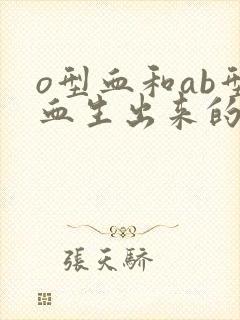 o型血和ab型
血生出来的
張天驕